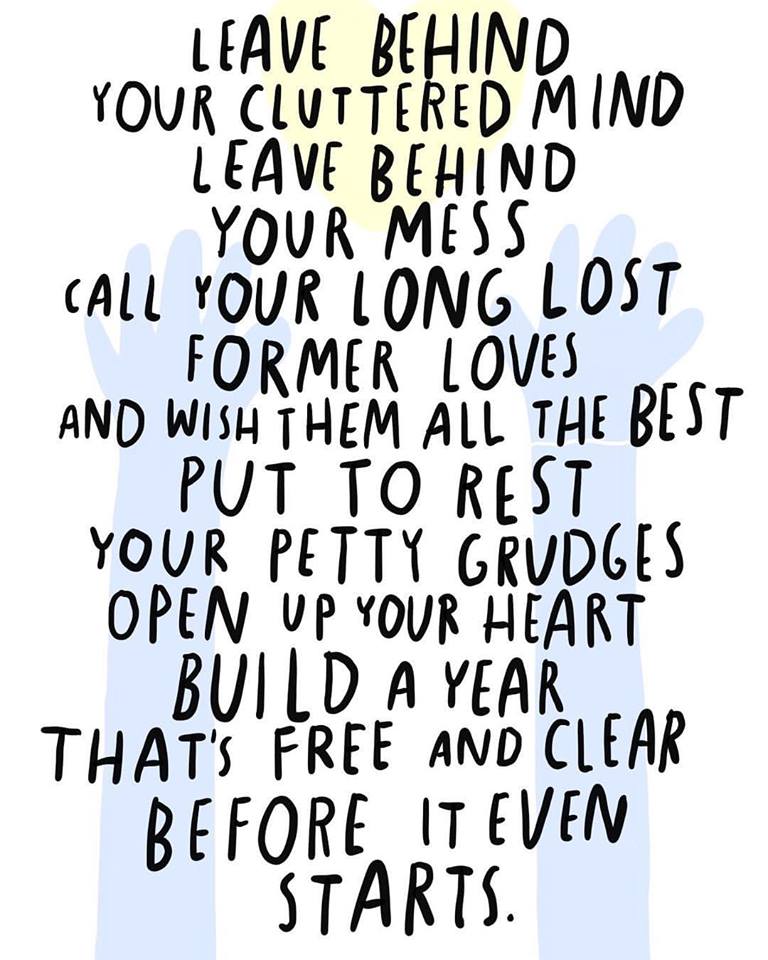 LEAVE BEHIND
YOUR CLUTTERED MIND
LEAVE BEHIND
YOUR MESS
CALL YOUR LONG LOST
FORMER LOVES
AND WISH THEM ALL THE BEST
PUT TO REST
YOUR PETTY GRUDGES
OPEN UP YOUR HEART
BUILD A YEAR
THAT'S FREE AND CLEAR
BEFORE IT EVEN
STARTS.